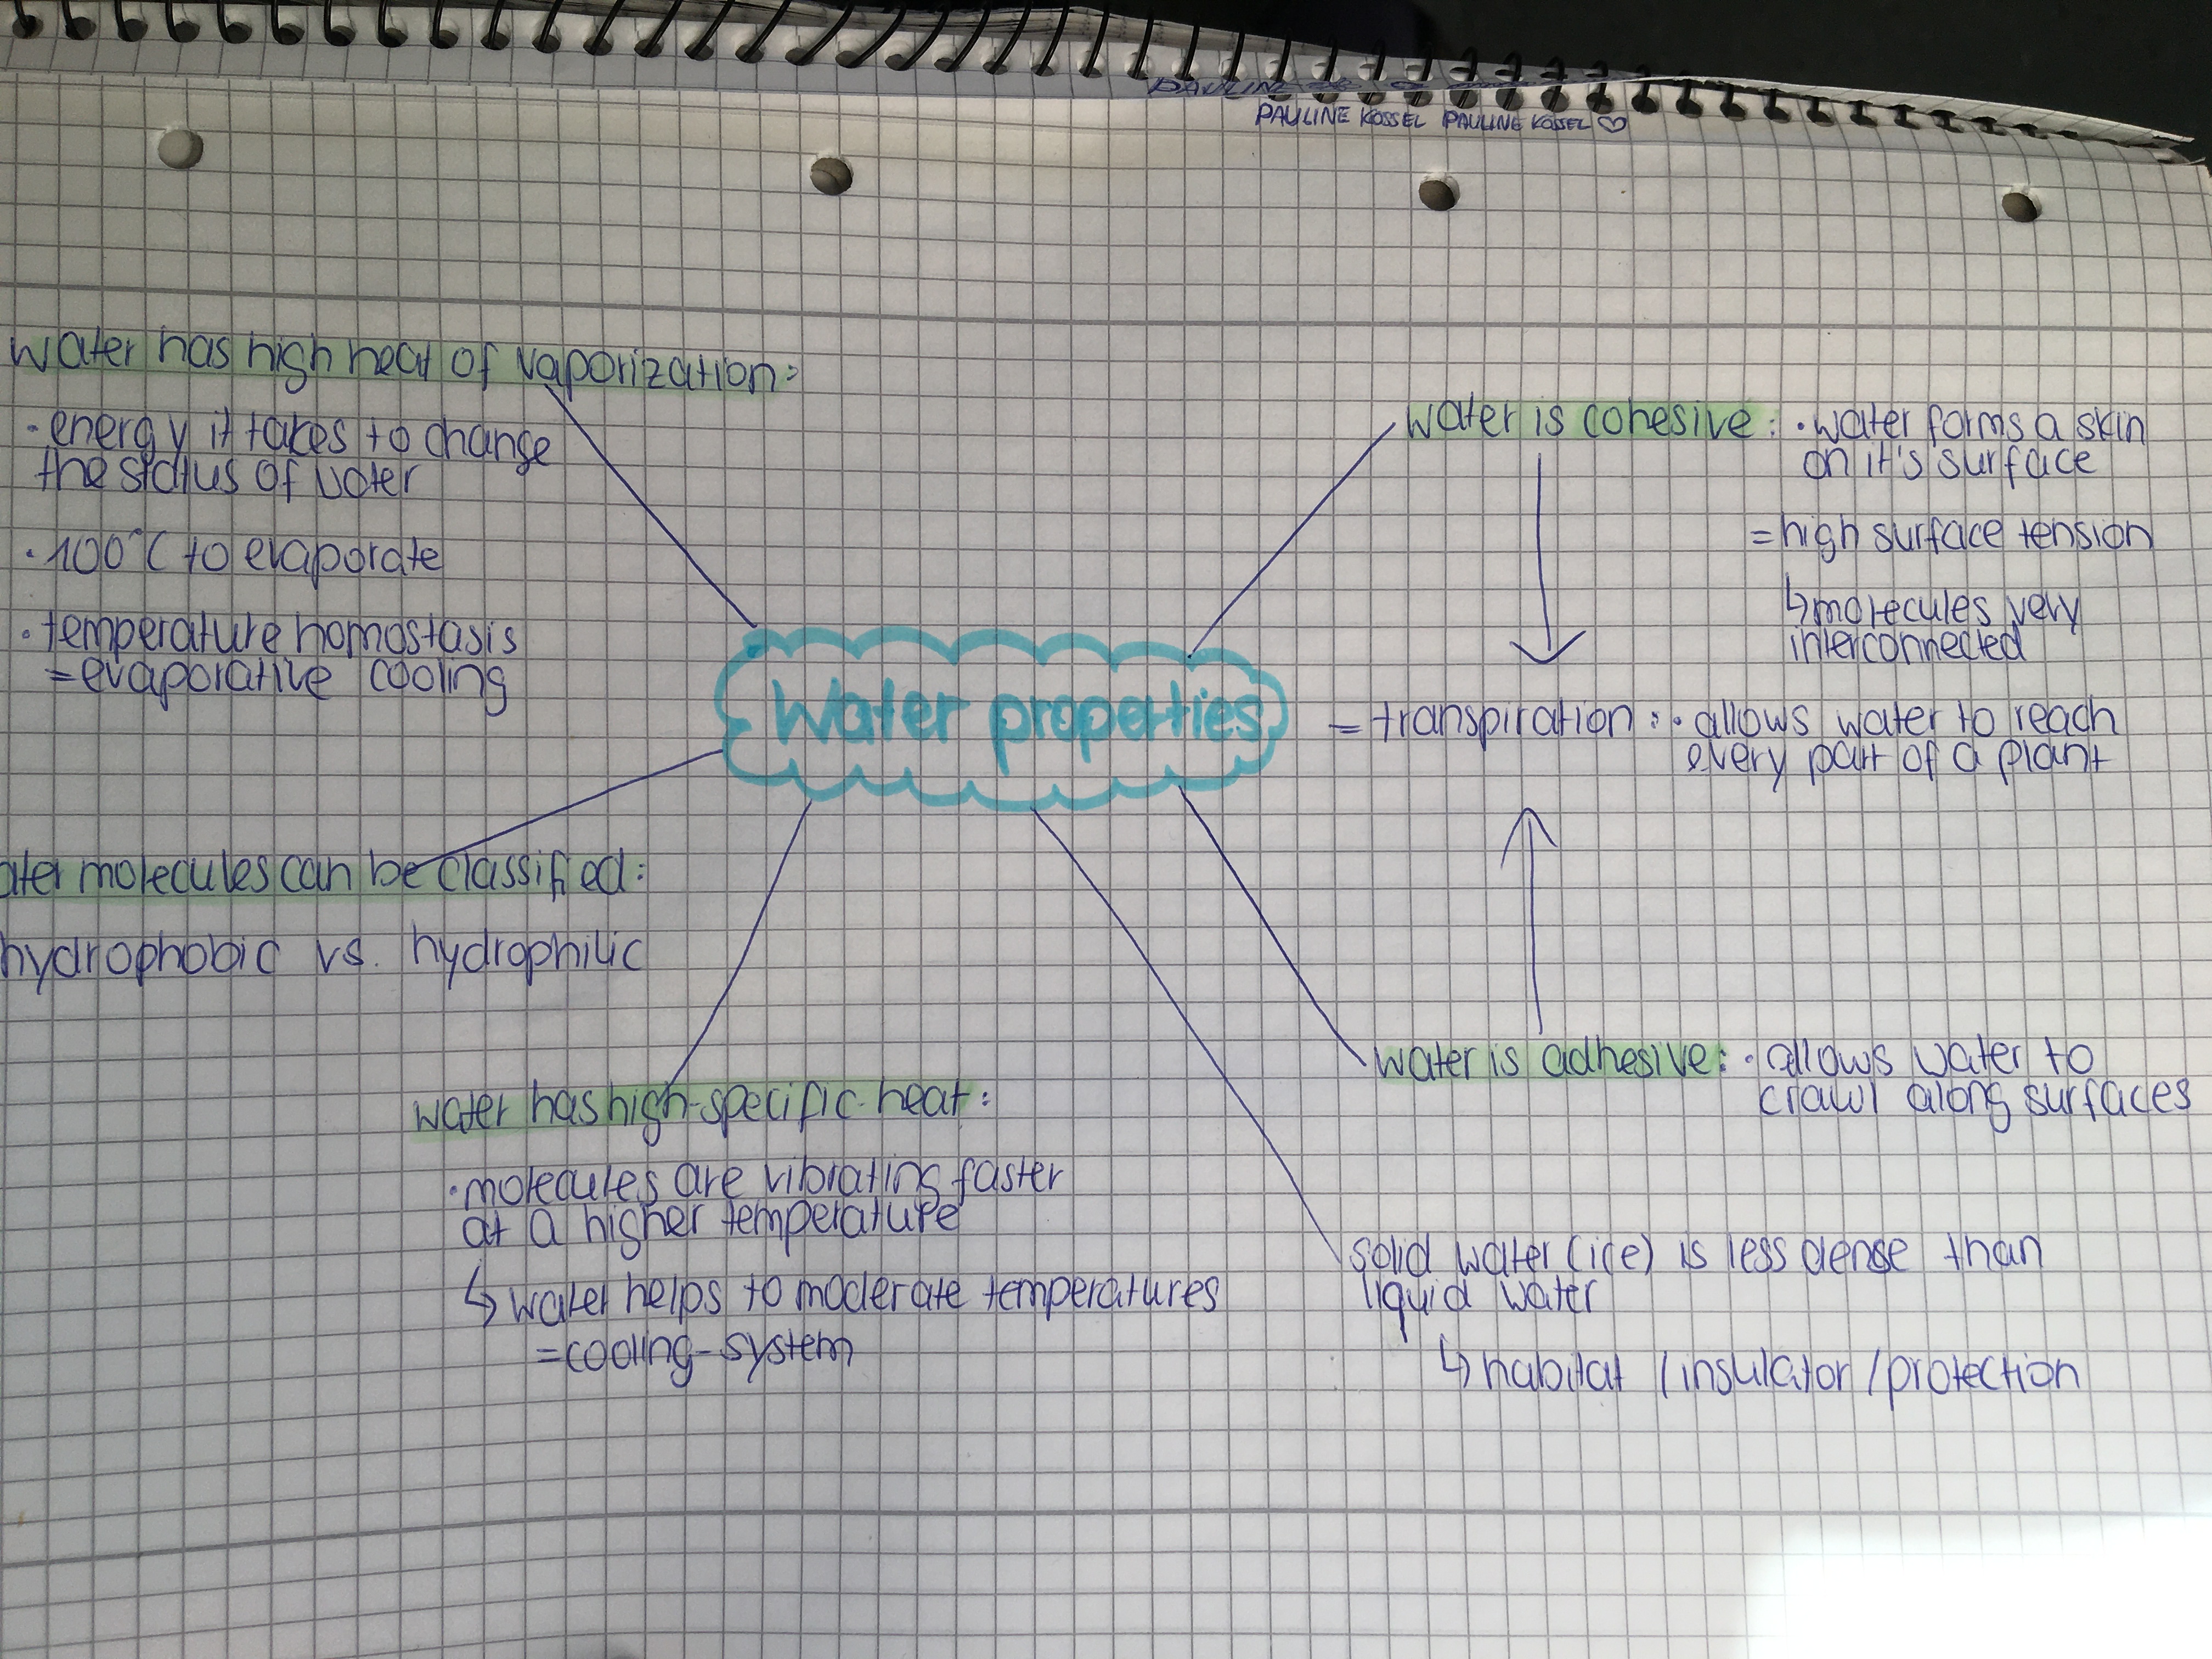 PAULINE
PAULINE KOSSEL PAULINE KOSSEL ♡
water has high heat of vaporization:
· energy it takes to change
the status of water
· 100°C to evaporate
· temperature homostasis
= evaporative cooling
water is cohesive: · water forms a skin
on it's surface
= high surface tension
↳ molecules very
interconnected
Water properties
= transpiration: · allows water to reach
every part of a plant
ater molecules can be classified:
hydrophobic vs. hydrophilic
water is adhesive: · allows water to
crawl along surfaces
water has high-specific-heat:
· molecules are vibrating faster
at a higher temperature
↳ water helps to moderate temperatures
= cooling-system
solid water (ice) is less dense than
liquid water
↳ habitat / insulator / protection